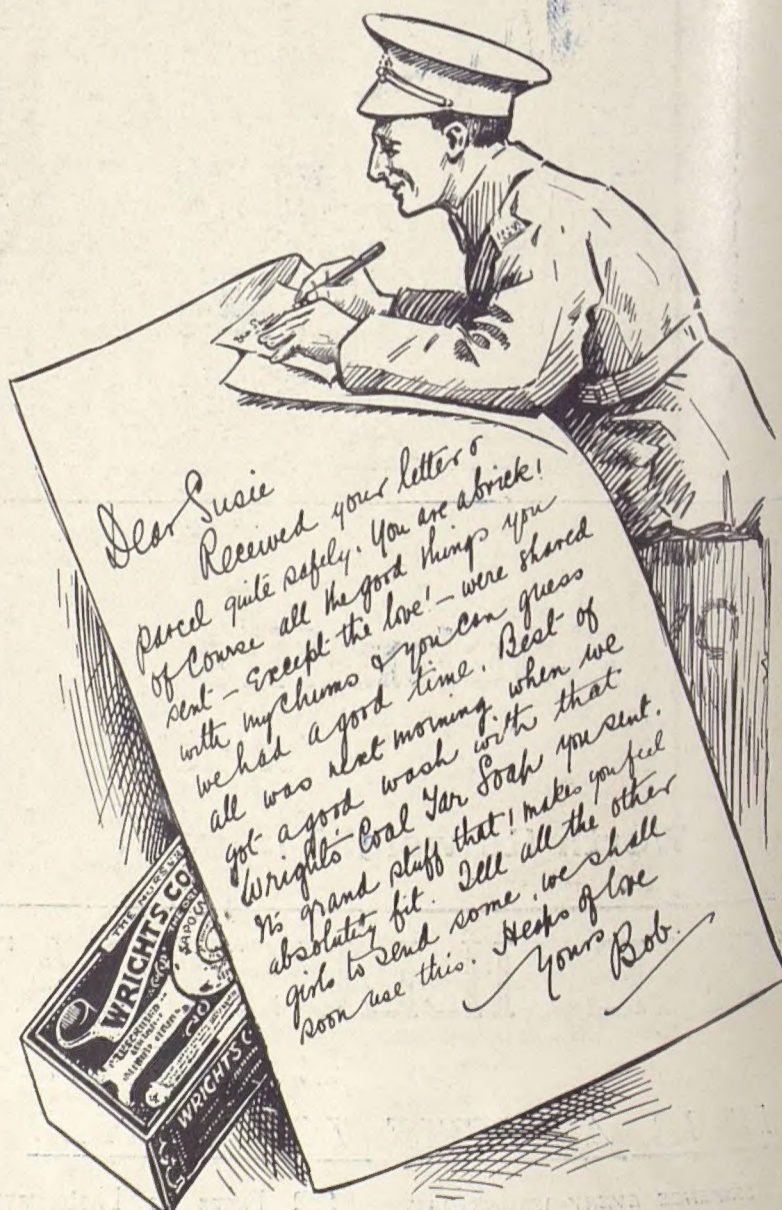 Dear Susie
Received your letter &
parcel quite safely. You are a brick!
of course all the good things you
sent – Except the love! – were shared
with my chums & you can guess
we had a good time. Best of
all was next morning when we
got a good wash with that
Wright's Coal Tar Soap you sent.
It's grand stuff that! makes you feel
absolutely fit. Tell all the other
girls to send some, we shall
soon use this. Heaps of love
Yours
Bob.
THE NURSERY
WRIGHTS CO
SAPO
WRIGHTS C